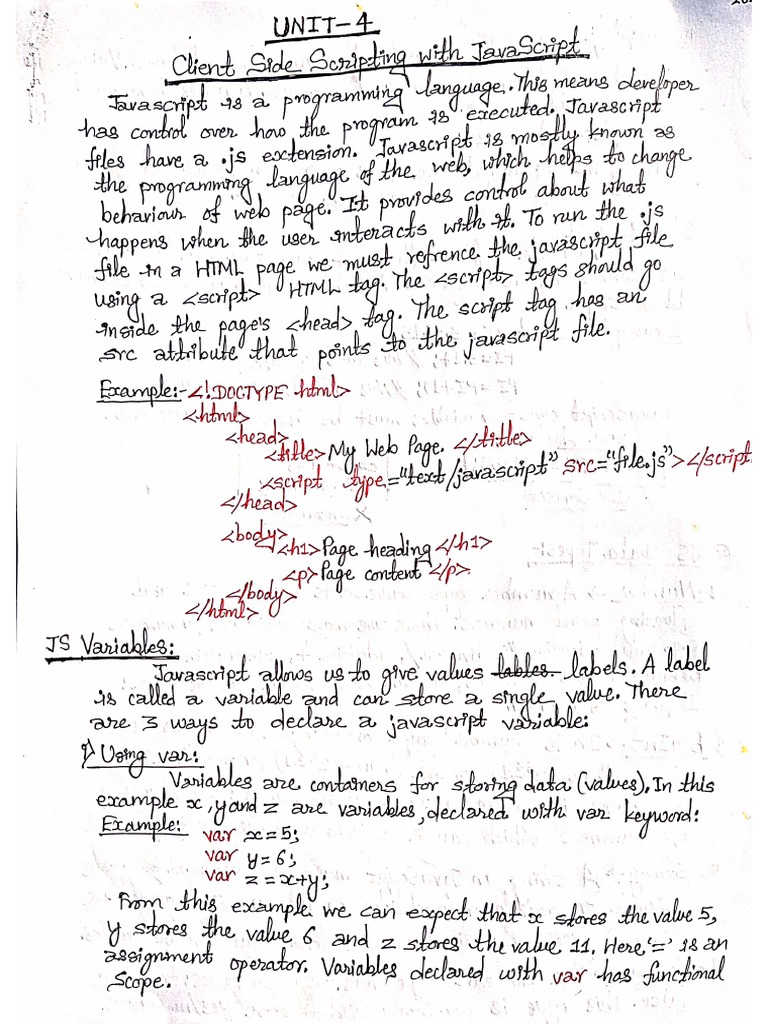 UNIT-4
Client Side Scripting with JavaScript
Javascript is a programming language. This means developer
has control over how the program is executed. Javascript
files have a .js extension. Javascript is mostly known as
the programming language of the web, which helps to change
behaviour of web page. It provides control about what
happens when the user interacts with it. To run the .js
file in a HTML page we must refrence the javascript file
using a <script> HTML tag. The <script> tags should go
inside the page's <head> tag. The script tag has an
src attribute that points to the javascript file.
Example:- <!DOCTYPE html>
<html>
<head>
<title> My Web Page. </title>
<script type="text/javascript" src="file.js"></script
</head>
<body>
<h1> Page heading </h1>
<p> Page content </p>
</body>
</html>
JS Variables:
Javascript allows us to give values lables labels. A label
is called a variable and can store a single value. There
are 3 ways to declare a javascript variable:
1) Using var:
Variables are containers for storing data (values). In this
example x, y and z are variables, declared with var keyword:
Example:
var x=5;
var y=6;
var z=x+y;
From this example we can expect that x stores the value 5,
y stores the value 6 and z stores the value 11. Here '=' is an
assignment operator. Variables declared with var has functional
Scope.